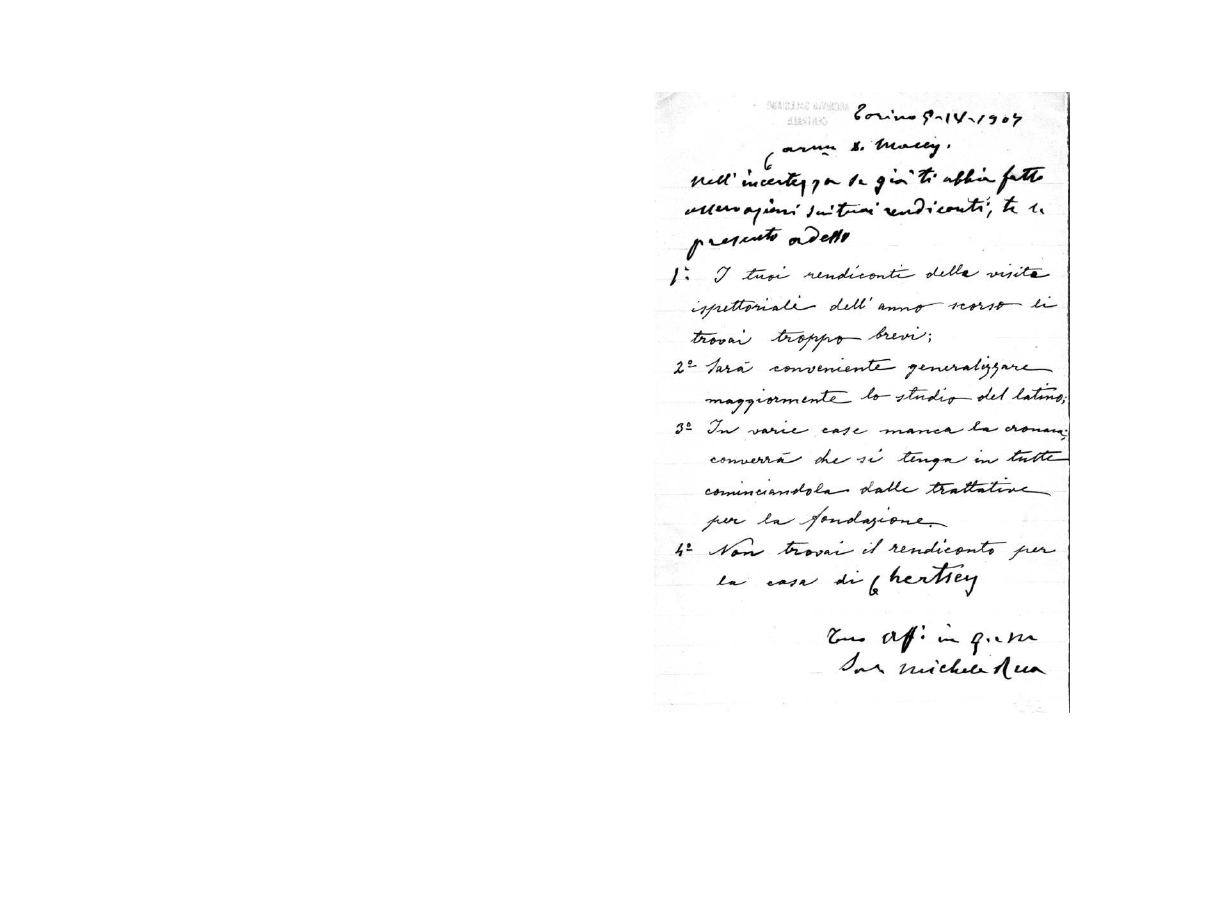 Torino 9-IV-1907
Carmo D. Macey.
Nell'incertezza se già ti abbia fatto
osservazioni sui tuoi rendiconti, te le
presento adesso
1º I tuoi rendiconti delle visite
ispettoriali dell'anno scorso li
trovai troppo brevi;
2º Sarà conveniente generalizzare
maggiormente lo studio del latino;
3º In varie case manca la cronaca;
converrà che si tenga in tutte
cominciandola dalle trattative
per la fondazione.
4º Non trovai il rendiconto per
la casa di Chertsey
Tuo aff: in G. e M.
Sac. Michele Rua